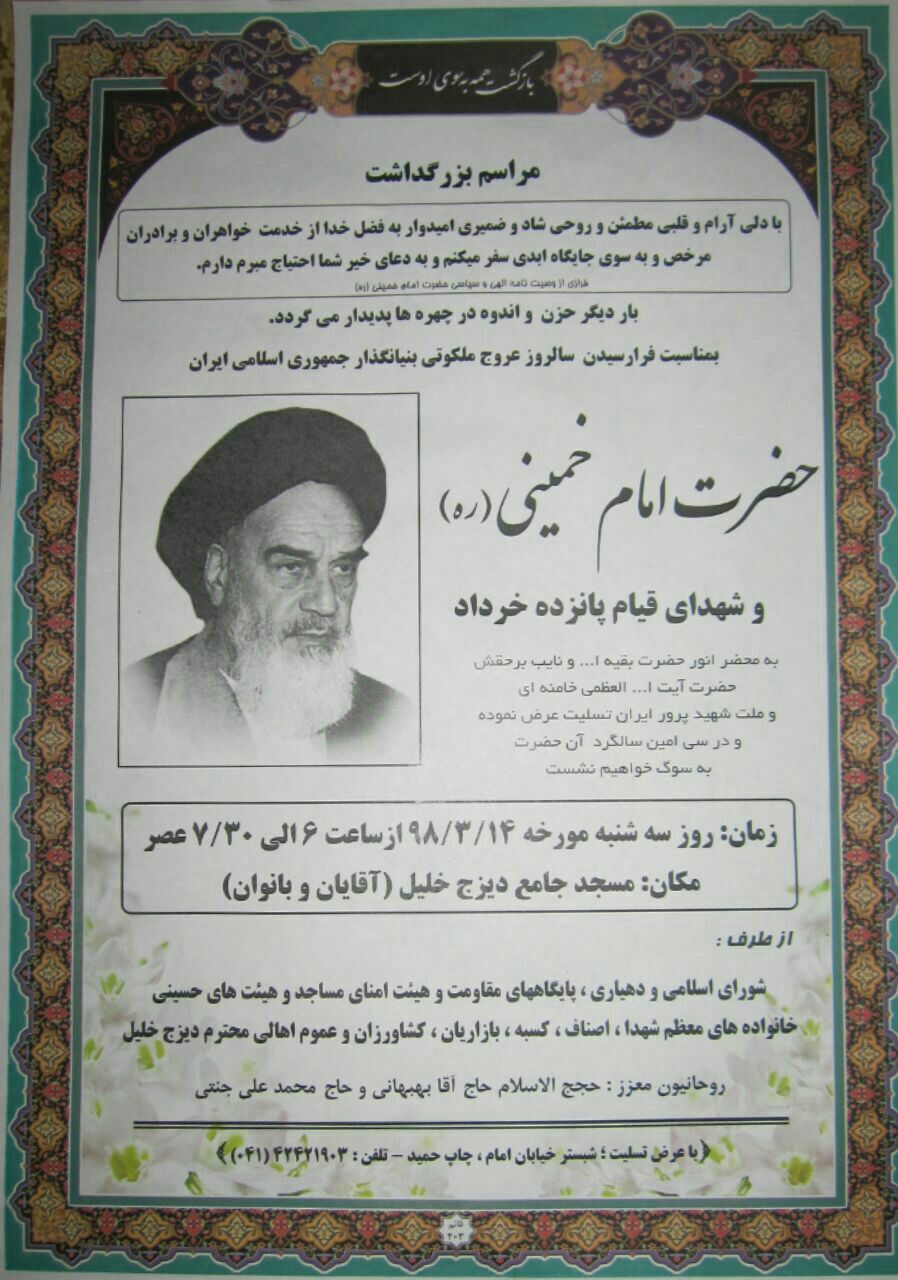 بازگشت همه به سوی اوست
مراسم بزرگداشت
با دلی آرام و قلبی مطمئن و روحی شاد و ضمیری امیدوار به فضل خدا از خدمت خواهران و برادران
مرخص و به سوی جایگاه ابدی سفر میکنم و به دعای خیر شما احتیاج مبرم دارم.
فرازی از وصیت نامه الهی و سیاسی حضرت امام خمینی (ره)
بار دیگر حزن و اندوه در چهره ها پدیدار می گردد.
بمناسبت فرارسیدن سالروز عروج ملکوتی بنیانگذار جمهوری اسلامی ایران
حضرت امام خمینی (ره)
و شهدای قیام پانزده خرداد
به محضر انور حضرت بقیه ا... و نایب برحقش
حضرت آیت ا... العظمی خامنه ای
و ملت شهید پرور ایران تسلیت عرض نموده
و در سی امین سالگرد آن حضرت
به سوگ خواهیم نشست
زمان: روز سه شنبه مورخه ۹۸/۳/۱۴ از ساعت ۶ الی ۷/۳۰ عصر
مکان: مسجد جامع دیزج خلیل (آقایان و بانوان)
از طرف :
شورای اسلامی و دهیاری ، پایگاههای مقاومت و هیئت امنای مساجد و هیئت های حسینی
خانواده های معظم شهدا ، اصناف ، کسبه ، بازاریان ، کشاورزان و عموم اهالی محترم دیزج خلیل
روحانیون معزز : حجج الاسلام حاج آقا بهبهانی و حاج محمد علی جنتی
﴿با عرض تسلیت ؛ شبستر خیابان امام ، چاپ حمید – تلفن : ۴۲۴۲۱۹۰۳ (۰۴۱)﴾
قائم
۲۰۳